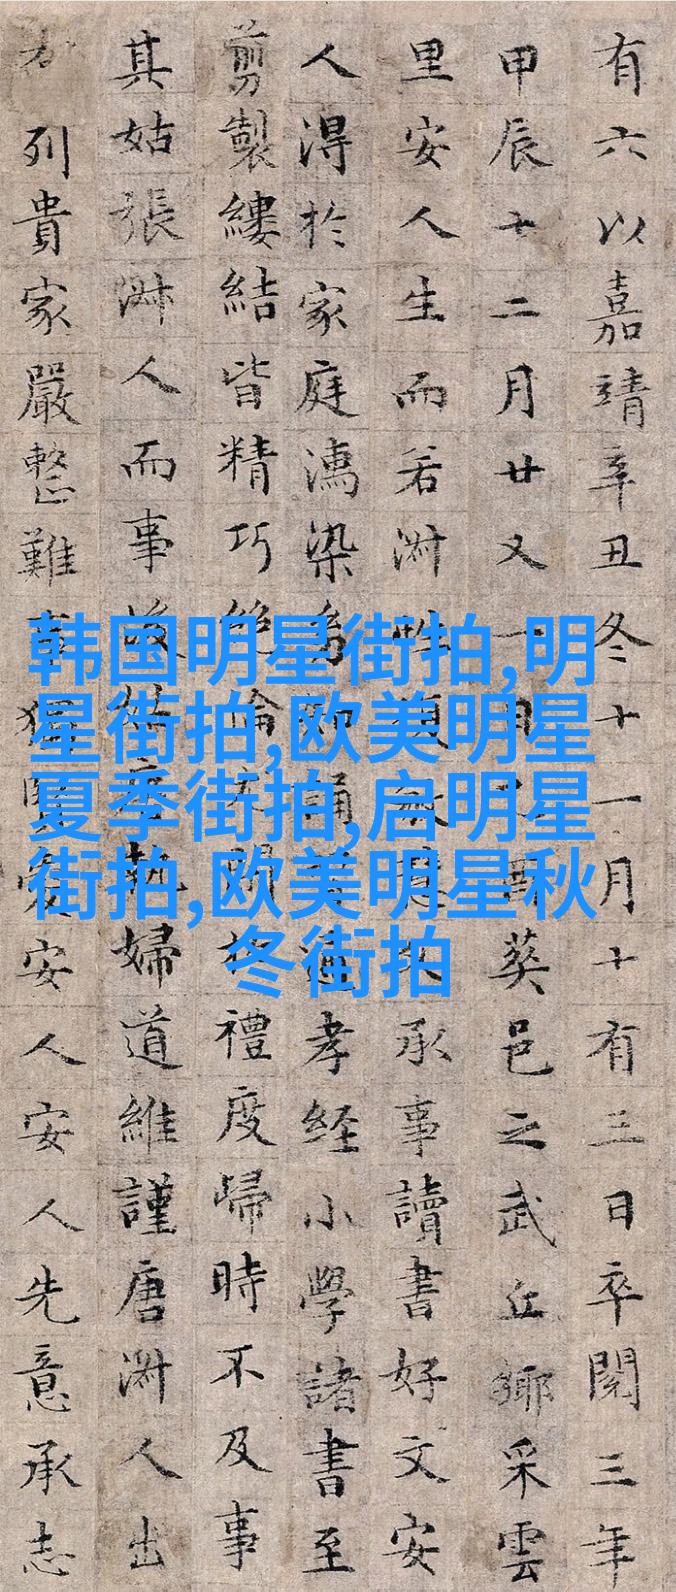 有六以嘉靖辛丑冬十一月十有三日卒閱三年
甲辰十二月廿又一日酉葬邑之武丘鄉采雲
里安人生而若淑性承事讀書好文安
人得於家庭濡染為誦孝經小學諸書至
剪製縷結皆精巧絕倫禮度歸時不及事
其姑張淑人而事後執婦道維謹唐淑人出
列貴家嚴整難事獨賢愛安人安人先意承志
韩国明星街拍,明
星街拍,欧美明星
夏季街拍,启明星
街拍,欧美明星秋
冬街拍